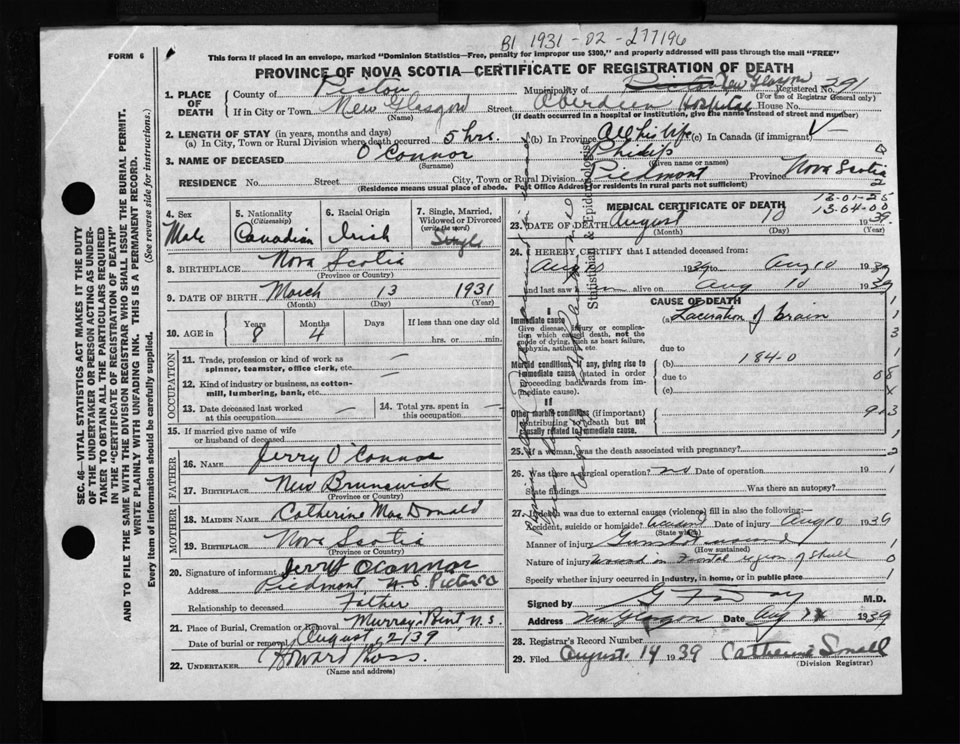 B1 1931-02-277196
FORM 6
This form if placed in an envelope, marked "Dominion Statistics—Free, penalty for improper use $300," and properly addressed will pass through the mail "FREE"
PROVINCE OF NOVA SCOTIA—CERTIFICATE OF REGISTRATION OF DEATH
1. PLACE OF DEATH
County of Pictou
Municipality of New Glasgow Registered No. 291
(For use of Registrar General only)
If in City or Town New Glasgow Street Aberdeen Hospital House No.
(Name) (If death occurred in a hospital or institution, give the name instead of street and number)
2. LENGTH OF STAY (in years, months and days)
(a) In City, Town or Rural Division where death occurred 5 hrs. (b) In Province All his life (c) In Canada (if immigrant)
3. NAME OF DECEASED O'Connor Philip
(Surname) (given name or names)
RESIDENCE No. Street City, Town or Rural Division Piedmont Province Nova Scotia
(Residence means usual place of abode. Post Office Address for residents in rural parts not sufficient)
4. Sex Male
5. Nationality (Citizenship) Canadian
6. Racial Origin Irish
7. Single, Married, Widowed or Divorced (write the word) Single
8. BIRTHPLACE Nova Scotia
(Province or Country)
9. DATE OF BIRTH March 13 1931
(Month) (Day) (Year)
10. AGE in Years Months Days If less than one day old
8 4 hrs. or min.
OCCUPATION
11. Trade, profession or kind of work as spinner, teamster, office clerk, etc. —
12. Kind of industry or business, as cotton-mill, lumbering, bank, etc. —
13. Date deceased last worked at this occupation — 14. Total yrs. spent in this occupation —
15. If married give name of wife or husband of deceased
FATHER
16. NAME Jerry O'Connor
17. BIRTHPLACE New Brunswick
(Province or Country)
MOTHER
18. MAIDEN NAME Catherine MacDonald
19. BIRTHPLACE Nova Scotia
(Province or Country)
20. Signature of informant Jerry O'Connor
Address Piedmont N.S. Pictou Co
Relationship to deceased Father
21. Place of Burial, Cremation or Removal Murray Point, N.S.
Date of burial or removal August 12 1939
22. UNDERTAKER Howard Ross.
(Name and address)
13-01-25
13-64-00
MEDICAL CERTIFICATE OF DEATH
23. DATE OF DEATH August 10 1939.
(Month) (Day)
24. I HEREBY CERTIFY that I attended deceased from:
Aug 10 1939 to Aug 10 1939
and last saw him alive on Aug 10 1939
CAUSE OF DEATH
Immediate cause (a) Laceration of brain
Give disease, injury or complication which caused death, not the mode of dying, such as heart failure, asphyxia, asthenia, etc.
due to
Morbid conditions, if any, giving rise to immediate cause, stated in order proceeding backwards from immediate cause.
(b) 184-0
due to
(c)
Other morbid conditions (if important) contributing to death but not causally related to immediate cause.
25. If a woman, was the death associated with pregnancy?
26. Was there a surgical operation? no Date of operation 19
State findings Was there an autopsy?
27. If death was due to external causes (violence) fill in also the following:—
Accident, suicide or homicide? Accident Date of injury Aug 10 1939
(State which)
Manner of injury Gunshot wound
(How sustained)
Nature of injury Wound in frontal region of skull
Specify whether injury occurred in industry, in home, or in public place
Signed by M.D.
Address New Glasgow Date Aug 1939
28. Registrar's Record Number
29. Filed August 14 1939 Catherine Small
(Division Registrar)
SEC. 46—VITAL STATISTICS ACT MAKES IT THE DUTY OF THE UNDERTAKER OR PERSON ACTING AS UNDERTAKER TO OBTAIN ALL THE PARTICULARS REQUIRED IN THE "CERTIFICATE OF REGISTRATION OF DEATH" AND TO FILE THE SAME WITH THE DIVISION REGISTRAR WHO SHALL ISSUE THE BURIAL PERMIT.
WRITE PLAINLY WITH UNFADING INK. THIS IS A PERMANENT RECORD.
Every item of information should be carefully supplied. (See reverse side for instructions.)
Statistician & Epidemiologist